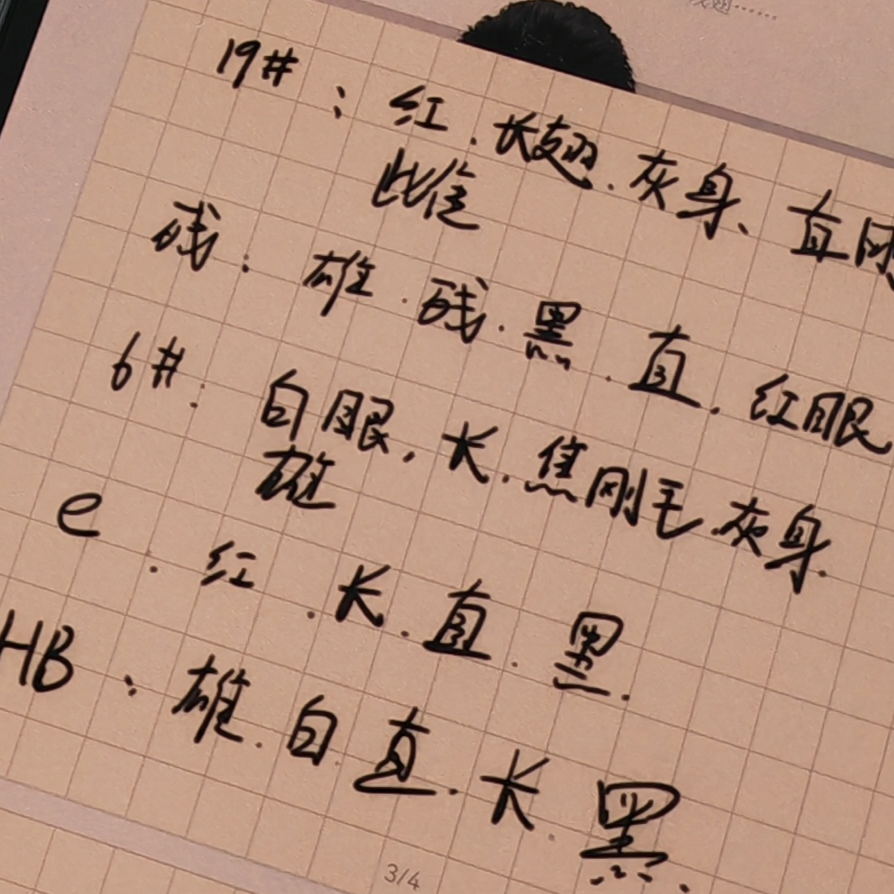 19#: 红. 长翅. 灰身、直刚
雌
残: 雄. 残. 黑. 直. 红眼
6#: 白眼. 长. 焦刚毛. 灰身.
雄
e. 红. 长. 直. 黑.
HB: 雄. 白. 直. 长. 黑.
3/4